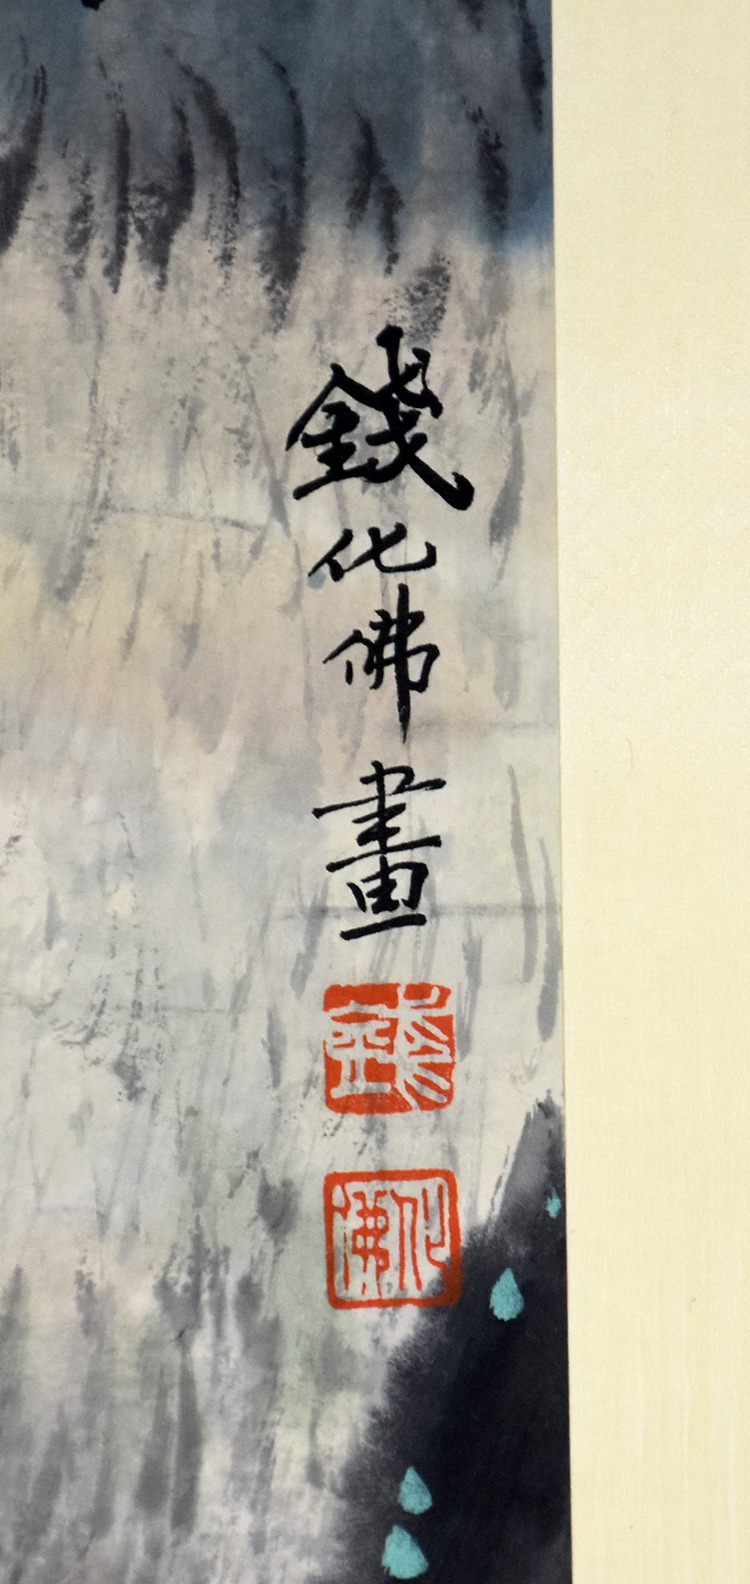 錢化佛畫
錢
化佛